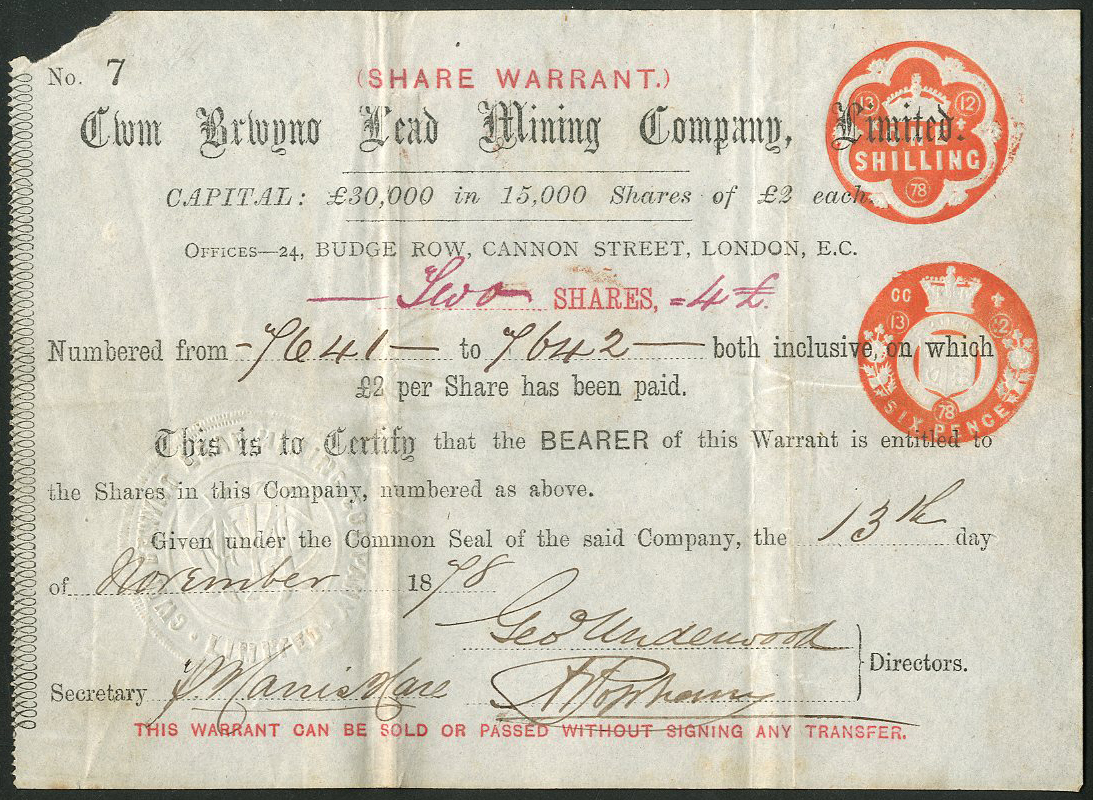 No. 7
(SHARE WARRANT.)
Cwm Brwyno Lead Mining Company, Limited.
CAPITAL: £30,000 in 15,000 Shares of £2 each.
OFFICES—24, BUDGE ROW, CANNON STREET, LONDON, E.C.
— Two SHARES, -4£.
Numbered from -7641— to 7642— both inclusive, on which
£2 per Share has been paid.
This is to Certify that the BEARER of this Warrant is entitled to
the Shares in this Company, numbered as above.
Given under the Common Seal of the said Company, the 13th day
of November 1878
Geo Underwood
Directors.
Secretary
THIS WARRANT CAN BE SOLD OR PASSED WITHOUT SIGNING ANY TRANSFER.
13 12
ONE
SHILLING
78
CC
13 12
78
SIX PENCE
LIMITED